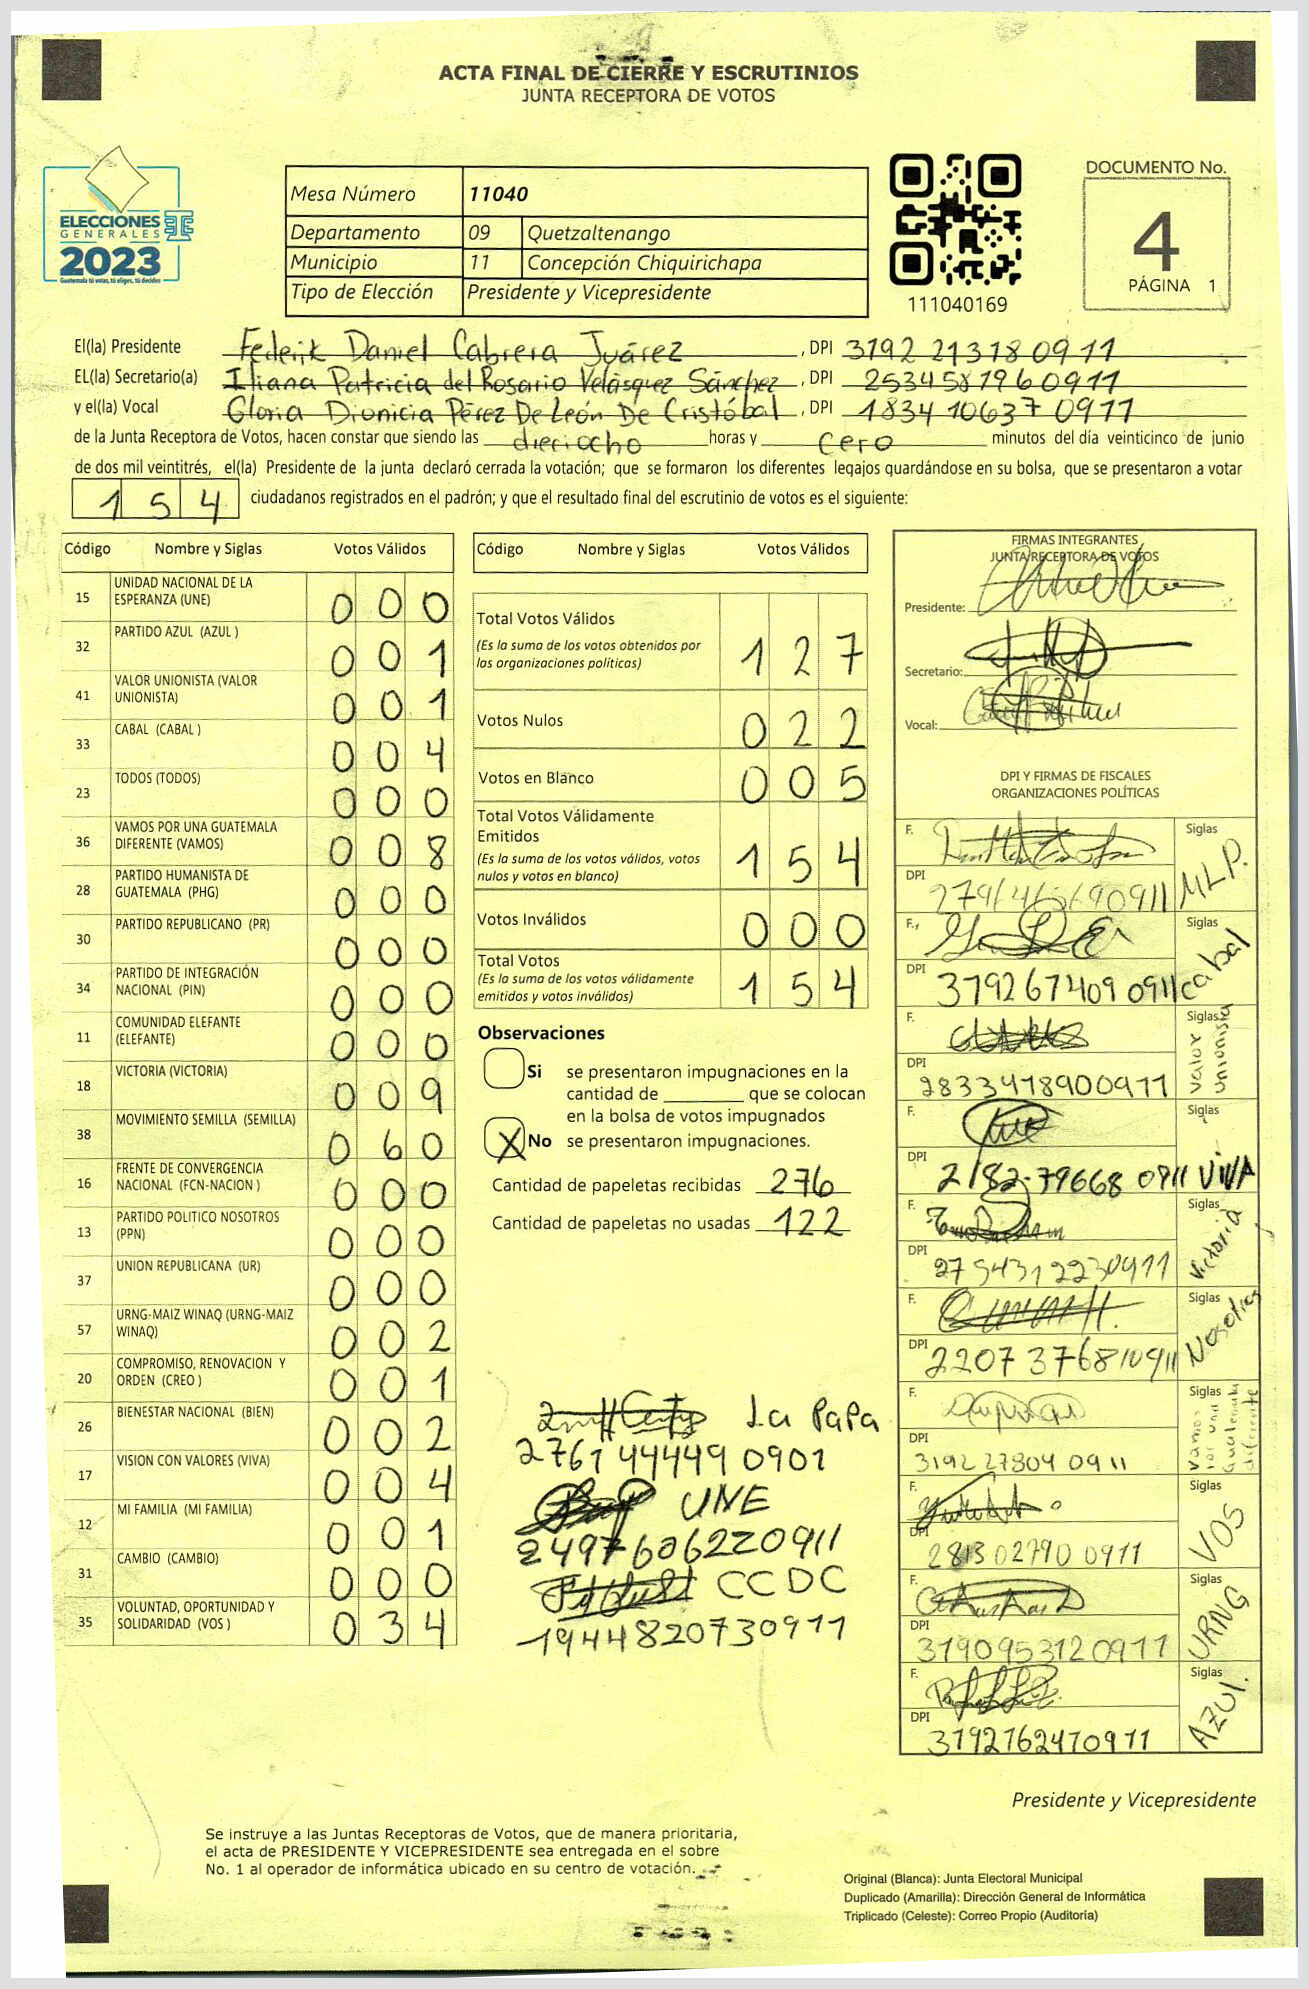 ACTA FINAL DE CIERRE Y ESCRUTINIOS
JUNTA RECEPTORA DE VOTOS
ELECCIONES
GENERALES
2023
Guatemala tú votas, tú eliges, tú decides
Mesa Número 11040
Departamento 09 Quetzaltenango
Municipio 11 Concepción Chiquirichapa
Tipo de Elección Presidente y Vicepresidente
111040169
DOCUMENTO No.
4
PÁGINA 1
El(la) Presidente Federik Daniel Cabrera Juárez, DPI 3192 21318 0911
EL(la) Secretario(a) Iliana Patricia del Rosario Velásquez Sánchez, DPI 2534 58796 0911
y el(la) Vocal Gloria Dionicia Pérez De León De Cristóbal, DPI 1834 10637 0911
de la Junta Receptora de Votos, hacen constar que siendo las dieciocho horas y cero minutos del día veinticinco de junio
de dos mil veintitrés, el(la) Presidente de la junta declaró cerrada la votación; que se formaron los diferentes legajos guardándose en su bolsa, que se presentaron a votar
154 ciudadanos registrados en el padrón; y que el resultado final del escrutinio de votos es el siguiente:
Código Nombre y Siglas Votos Válidos
15 UNIDAD NACIONAL DE LA ESPERANZA (UNE) 000
32 PARTIDO AZUL (AZUL ) 001
41 VALOR UNIONISTA (VALOR UNIONISTA) 001
33 CABAL (CABAL ) 004
23 TODOS (TODOS) 000
36 VAMOS POR UNA GUATEMALA DIFERENTE (VAMOS) 008
28 PARTIDO HUMANISTA DE GUATEMALA (PHG) 000
30 PARTIDO REPUBLICANO (PR) 000
34 PARTIDO DE INTEGRACIÓN NACIONAL (PIN) 000
11 COMUNIDAD ELEFANTE (ELEFANTE) 000
18 VICTORIA (VICTORIA) 009
38 MOVIMIENTO SEMILLA (SEMILLA) 060
16 FRENTE DE CONVERGENCIA NACIONAL (FCN-NACION ) 000
13 PARTIDO POLITICO NOSOTROS (PPN) 000
37 UNION REPUBLICANA (UR) 000
57 URNG-MAIZ WINAQ (URNG-MAIZ WINAQ) 002
20 COMPROMISO, RENOVACION Y ORDEN (CREO ) 001
26 BIENESTAR NACIONAL (BIEN) 002
17 VISION CON VALORES (VIVA) 004
12 MI FAMILIA (MI FAMILIA) 001
31 CAMBIO (CAMBIO) 000
35 VOLUNTAD, OPORTUNIDAD Y SOLIDARIDAD (VOS ) 034
Código Nombre y Siglas Votos Válidos
Total Votos Válidos 127
(Es la suma de los votos obtenidos por
las organizaciones políticas)
Votos Nulos 022
Votos en Blanco 005
Total Votos Válidamente
Emitidos 154
(Es la suma de los votos válidos, votos
nulos y votos en blanco)
Votos Inválidos 000
Total Votos 154
(Es la suma de los votos válidamente
emitidos y votos inválidos)
Observaciones
Si se presentaron impugnaciones en la
cantidad de ________ que se colocan
en la bolsa de votos impugnados
X No se presentaron impugnaciones.
Cantidad de papeletas recibidas 276
Cantidad de papeletas no usadas 122
La PaPa
2761 44449 0901
UNE
2497606220911
CCDC
1944820730911
FIRMAS INTEGRANTES
JUNTA RECEPTORA DE VOTOS
Presidente:
Secretario:
Vocal:
DPI Y FIRMAS DE FISCALES
ORGANIZACIONES POLÍTICAS
F. Siglas
DPI MLP.
F. Siglas
DPI 379267409 0911 cabal
F. Siglas
DPI 2833418900911 valor unionista
F. Siglas
DPI 2182-79668 0911 VIVA
F. Siglas
DPI 2754312230911 Victoria
F. Siglas
DPI 2207 376810911 Nosotros
F. Siglas
DPI 3192 27804 0911 Vamos por una Guatemala diferente
F. Siglas
DPI 2813 02790 0911 VOS
F. Siglas
DPI 3190953120911 URNG
F. Siglas
DPI 3192762470911 AZUL.
Presidente y Vicepresidente
Se instruye a las Juntas Receptoras de Votos, que de manera prioritaria,
el acta de PRESIDENTE Y VICEPRESIDENTE sea entregada en el sobre
No. 1 al operador de informática ubicado en su centro de votación.
Original (Blanca): Junta Electoral Municipal
Duplicado (Amarilla): Dirección General de Informática
Triplicado (Celeste): Correo Propio (Auditoría)